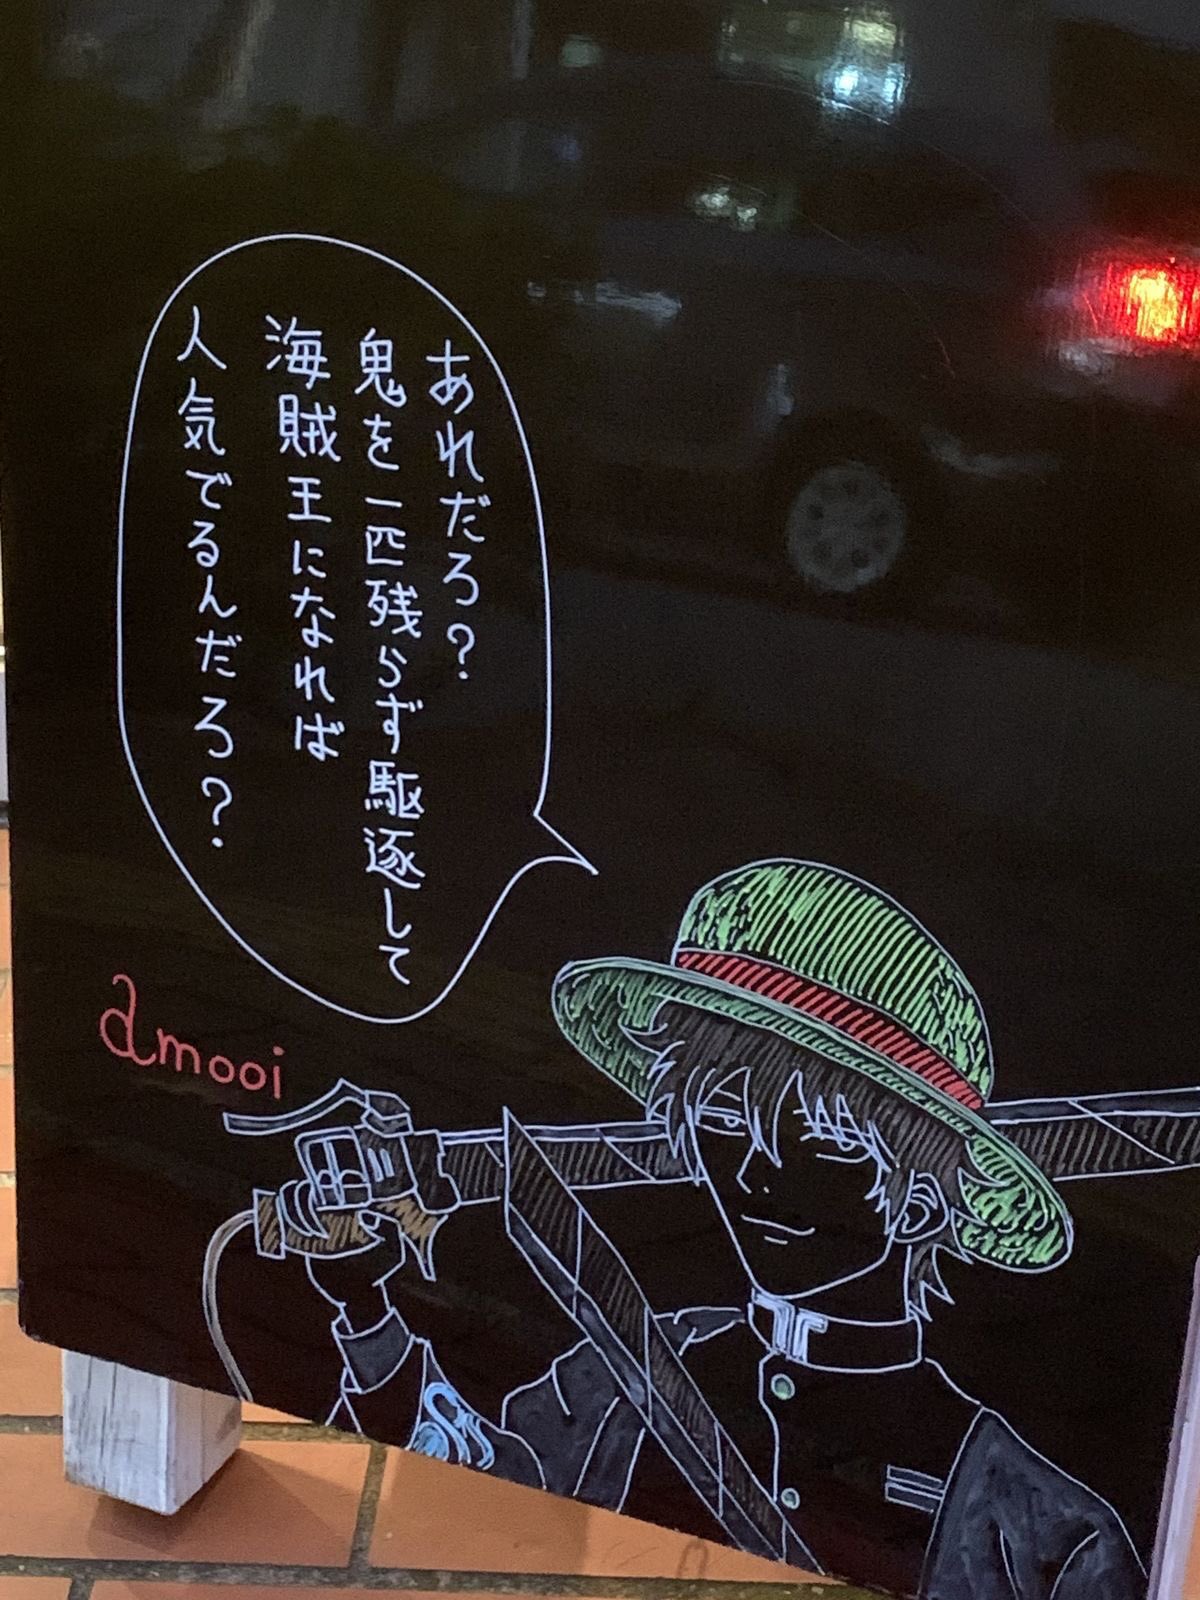 あれだろ？
鬼を一匹残らず駆逐して
海賊王になれば
人気でるんだろ？
amooi